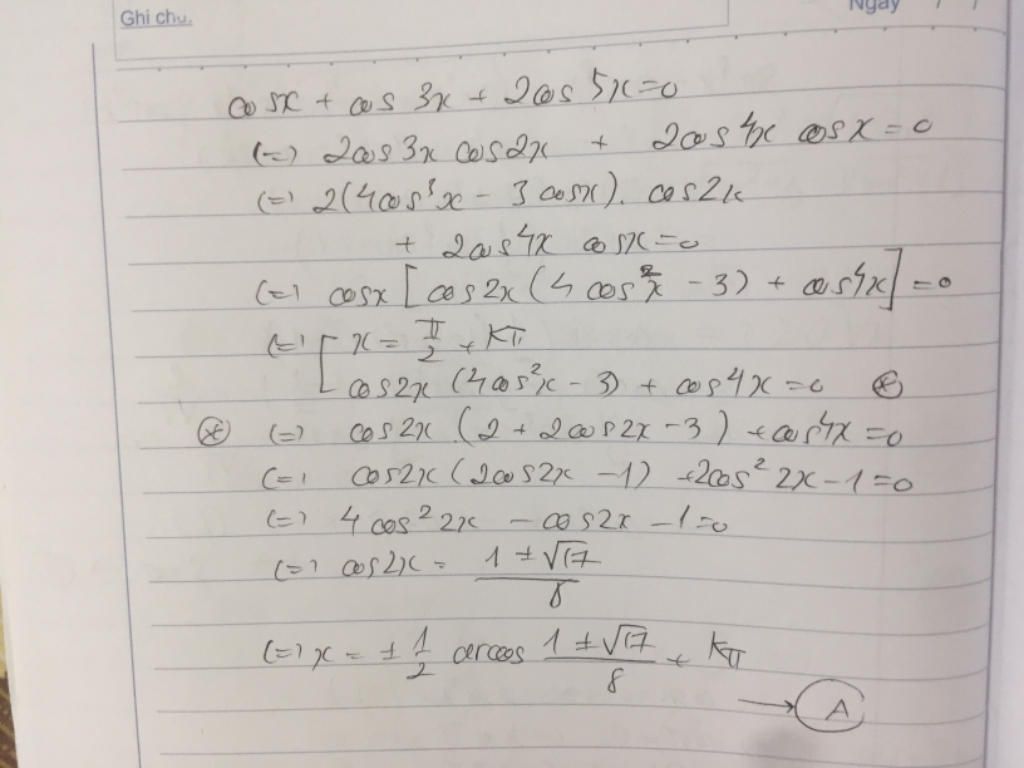 Ghi chú.
Ngày / /
cosx + cos 3x + 2cos 5x = 0
(=) 2cos3x cos2x + 2cos4x cosx = 0
(=) 2(4cos³x - 3cosx). cos2x
+ 2cos4x cosx = 0
(=) cosx [cos2x (4cos²x - 3) + cos4x] = 0
(=) [ x = π/2 + kπ
cos2x (4cos²x - 3) + cos4x = 0 (*)
(*) (=) cos2x (2 + 2cos2x - 3) + cos4x = 0
(=) cos2x (2cos2x - 1) + 2cos²2x - 1 = 0
(=) 4cos²2x - cos2x - 1 = 0
(=) cos2x = (1 ± √17)/8
(=) x = ± 1/2 arccos (1 ± √17)/8 + kπ
→ A